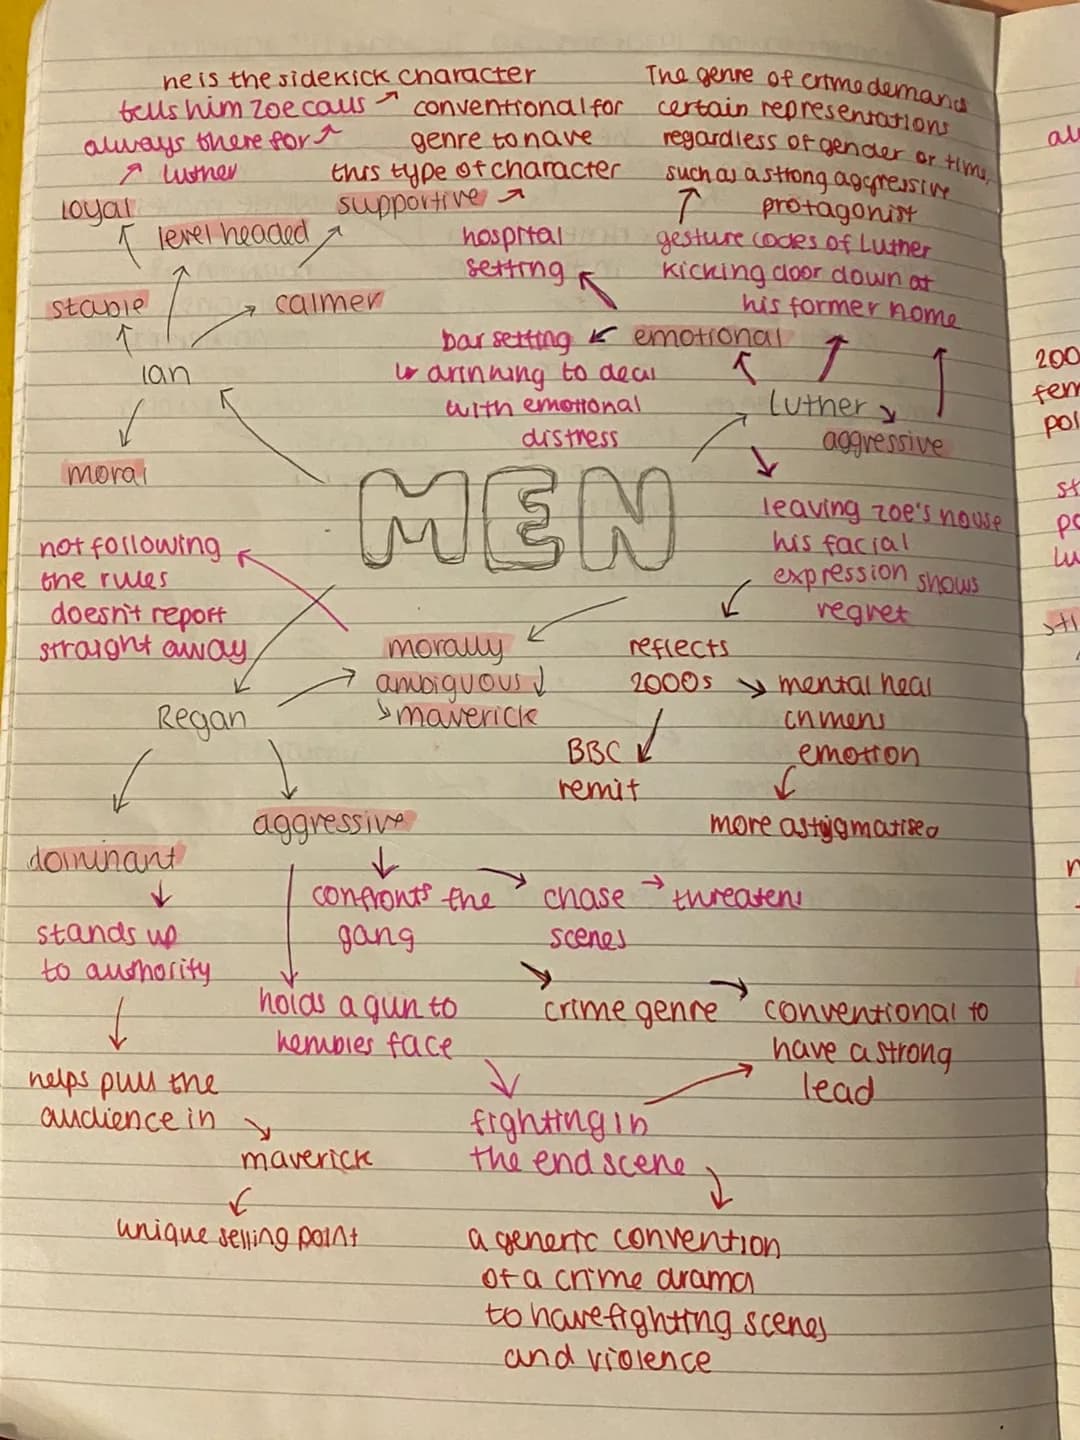 he is the sidekick character
tells him zoe calls
conventional for
always there for
genre to have
luther
this type of character
The genre of crime demands
certain representations
regardless of gender or time,
such as a strong aggressive
protagonist
loyal
supportive
level headed
hospital
setting
gesture codes of Luther
kicking door down at
his former home
stable
calmer
bar setting
emotional
drinking to deal
with emotional
distress
Ian
Luther
aggressive
moral
MEN
leaving zoe's house
his facial
expression shows
regret
not following
the rules
doesn't report
straight away
morally
ambiguous
maverick
reflects
2000s
mental heal
mens
emotion
Regan
BBC
remit
more astygmatised
aggressive
dominant
confronts the
gang
chase
scenes
threatens
stands up
to authority
holds a gun to
kembles face
crime genre
conventional to
have a strong
lead
helps pull the
audience in
fighting in
the end scene
maverick
unique selling point
a generic convention
of a crime drama
to have fighting scenes
and violence
al
200
fem
pol
st
po
lu
sti